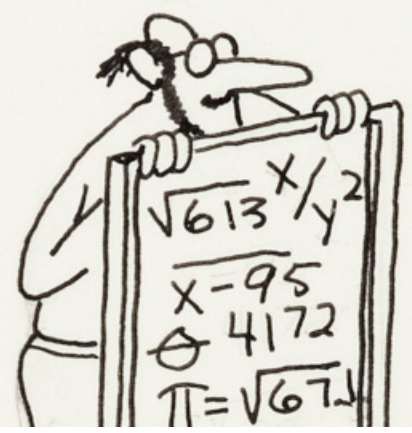 √613 x/y²
x-95
θ 4172
π=√67